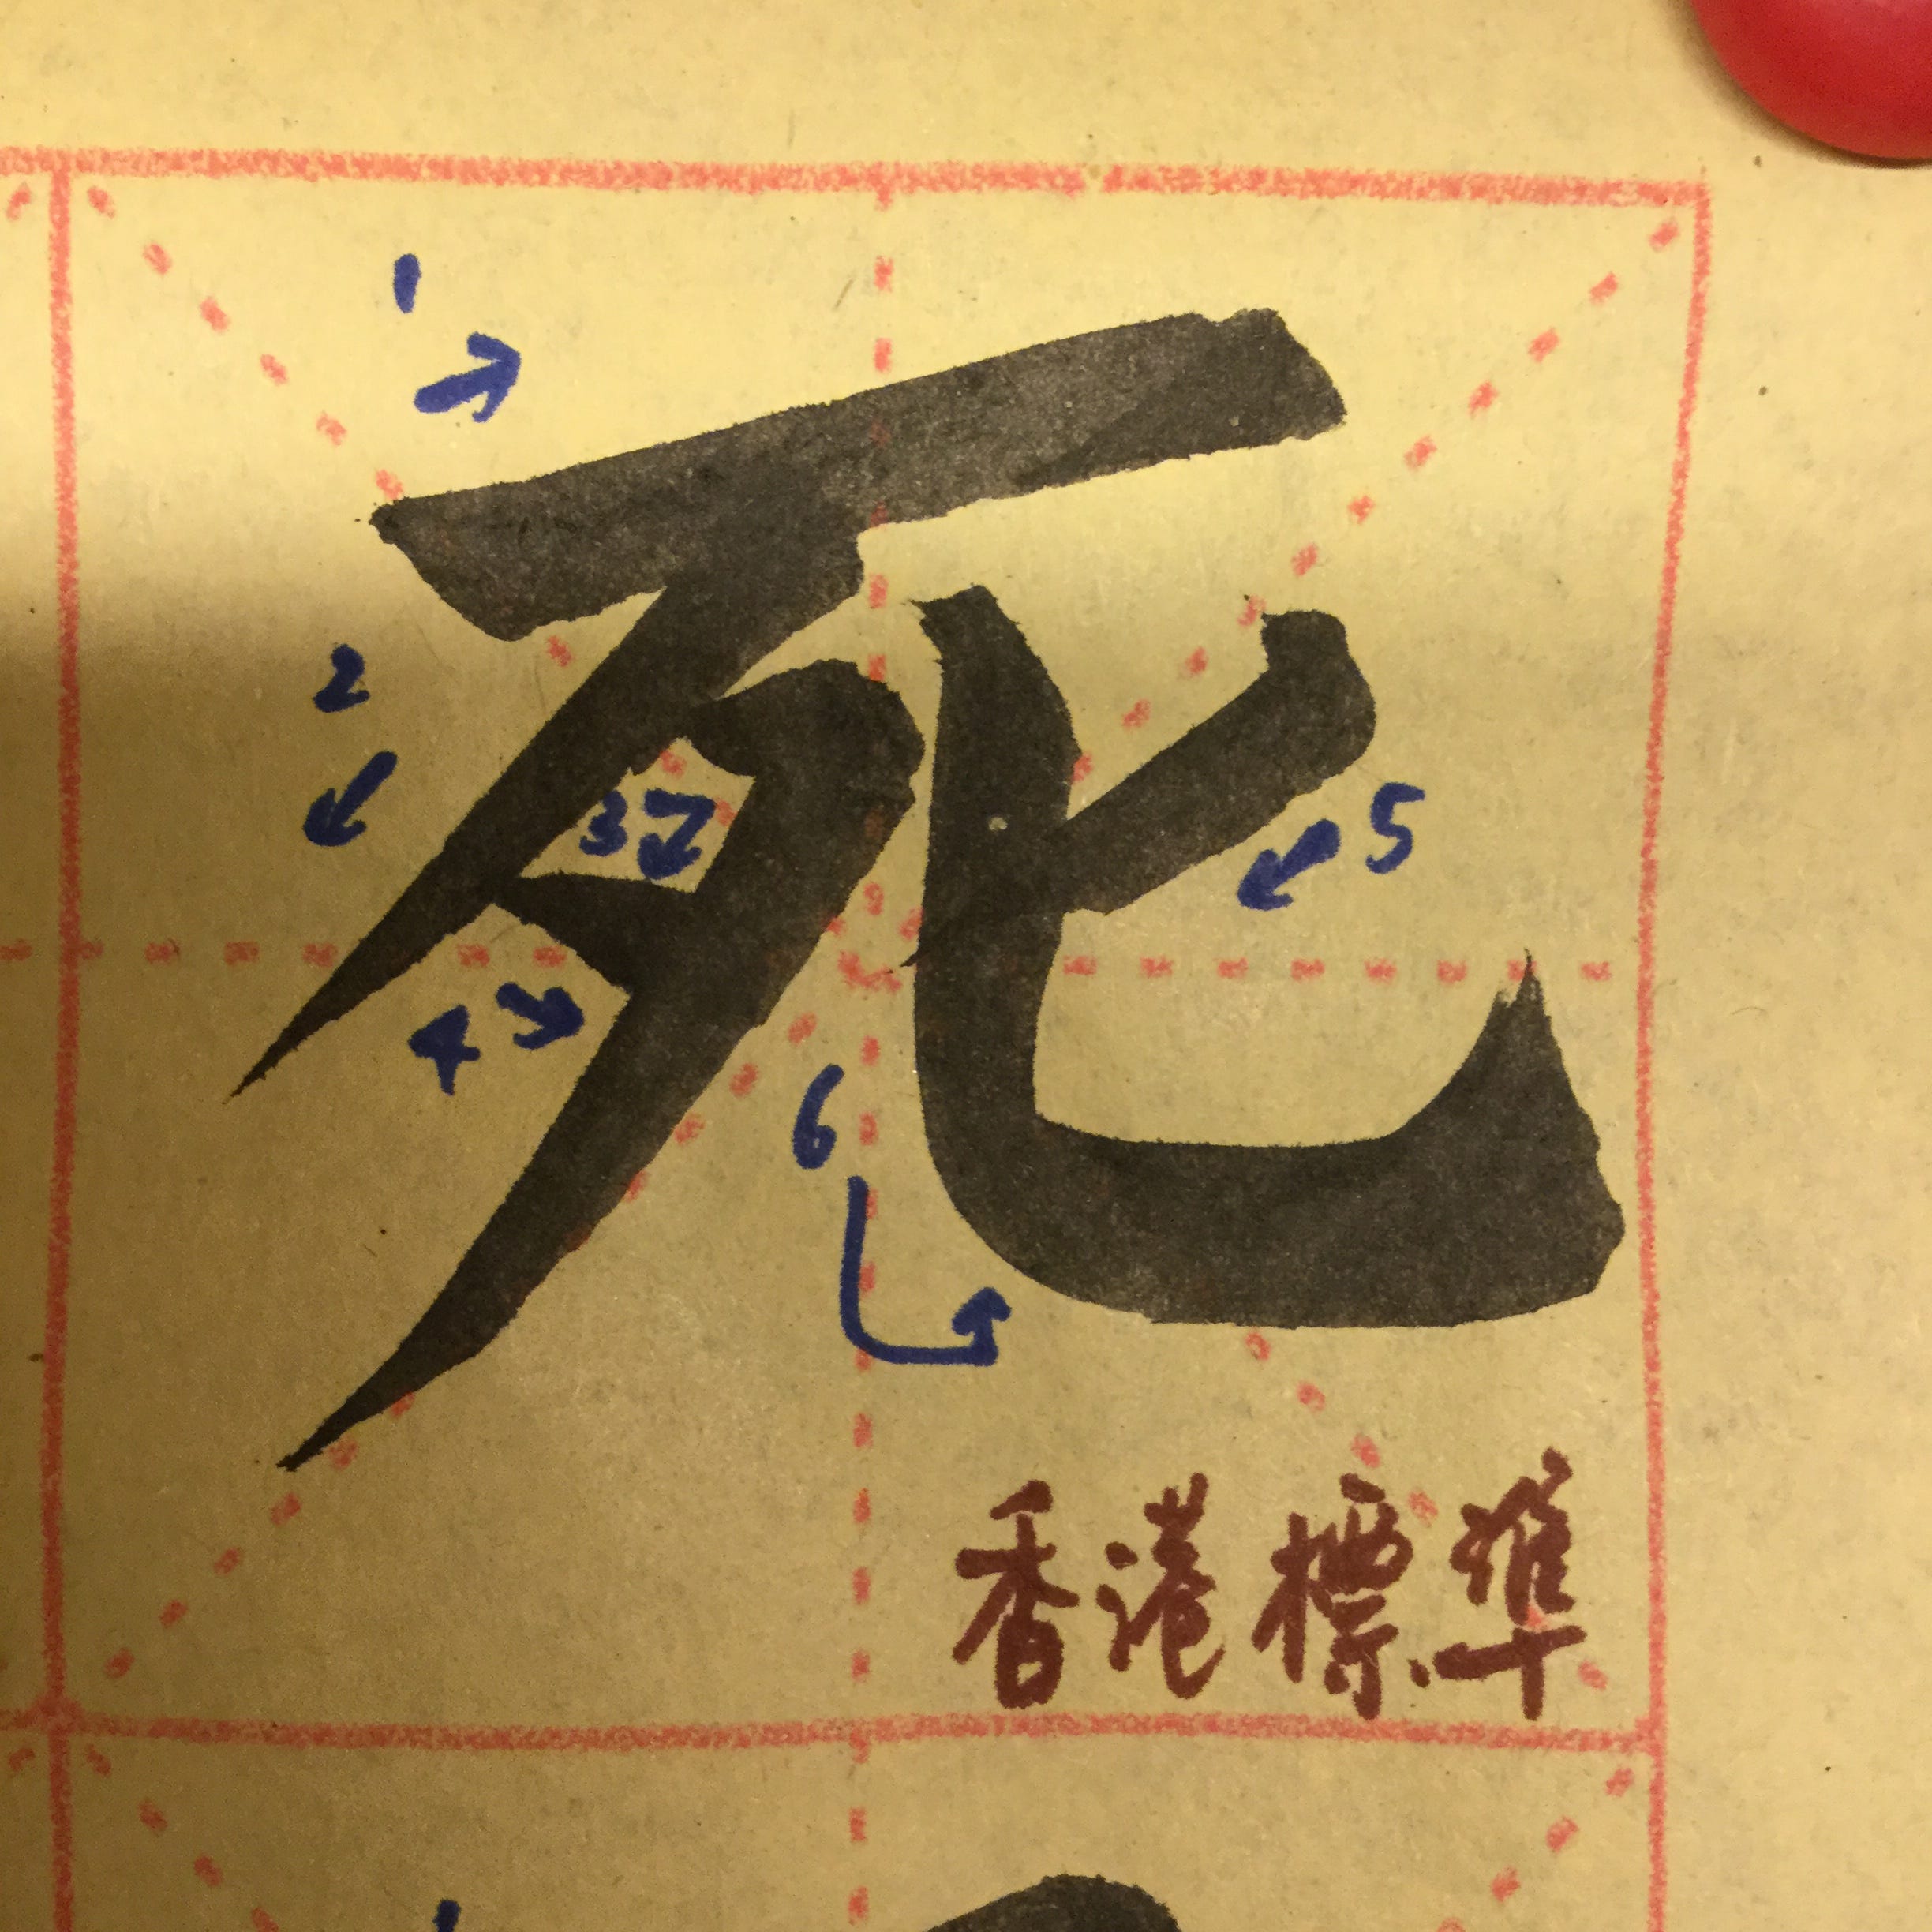 1
死
2
3
5
4
6
香港標準